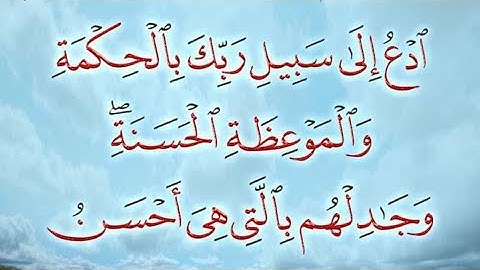 ٱدْعُ إِلَىٰ سَبِيلِ رَبِّكَ بِٱلْحِكْمَةِ
وَٱلْمَوْعِظَةِ ٱلْحَسَنَةِ ۖ
وَجَـٰدِلْهُم بِٱلَّتِي هِيَ أَحْسَنُ